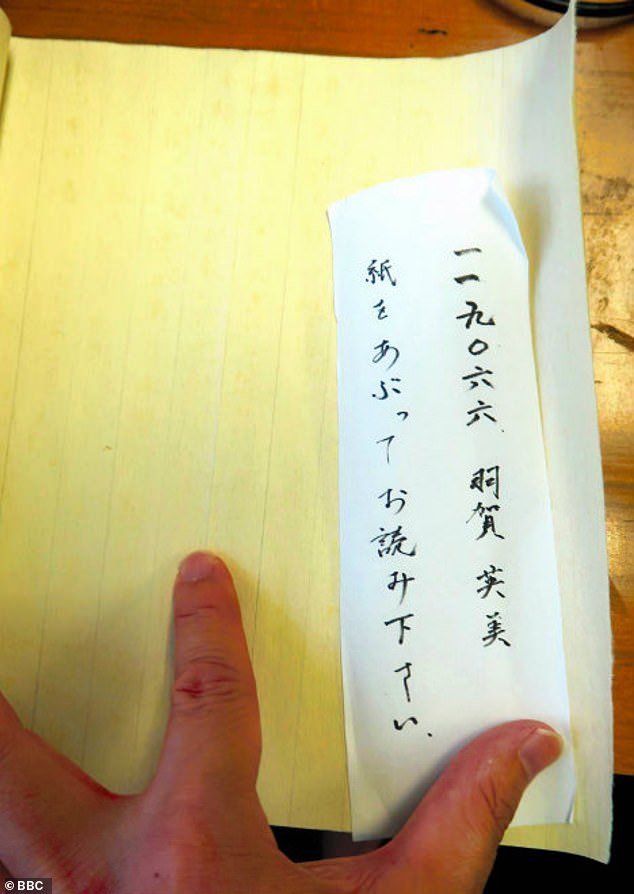 一一九〇六六 羽賀 英美
紙をあぶってお読み下さい、
© BBC